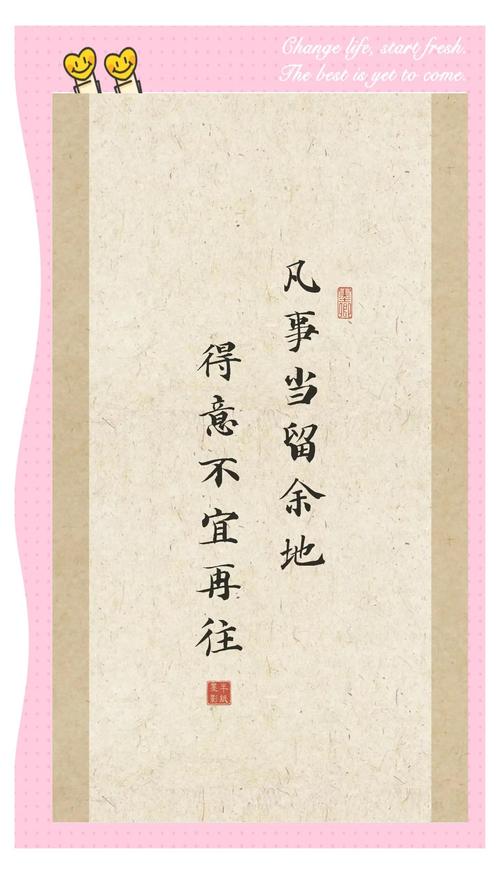 Change life, start fresh.
The best is yet to come.
凡事当留余地
得意不宜再往
半纸
墨影